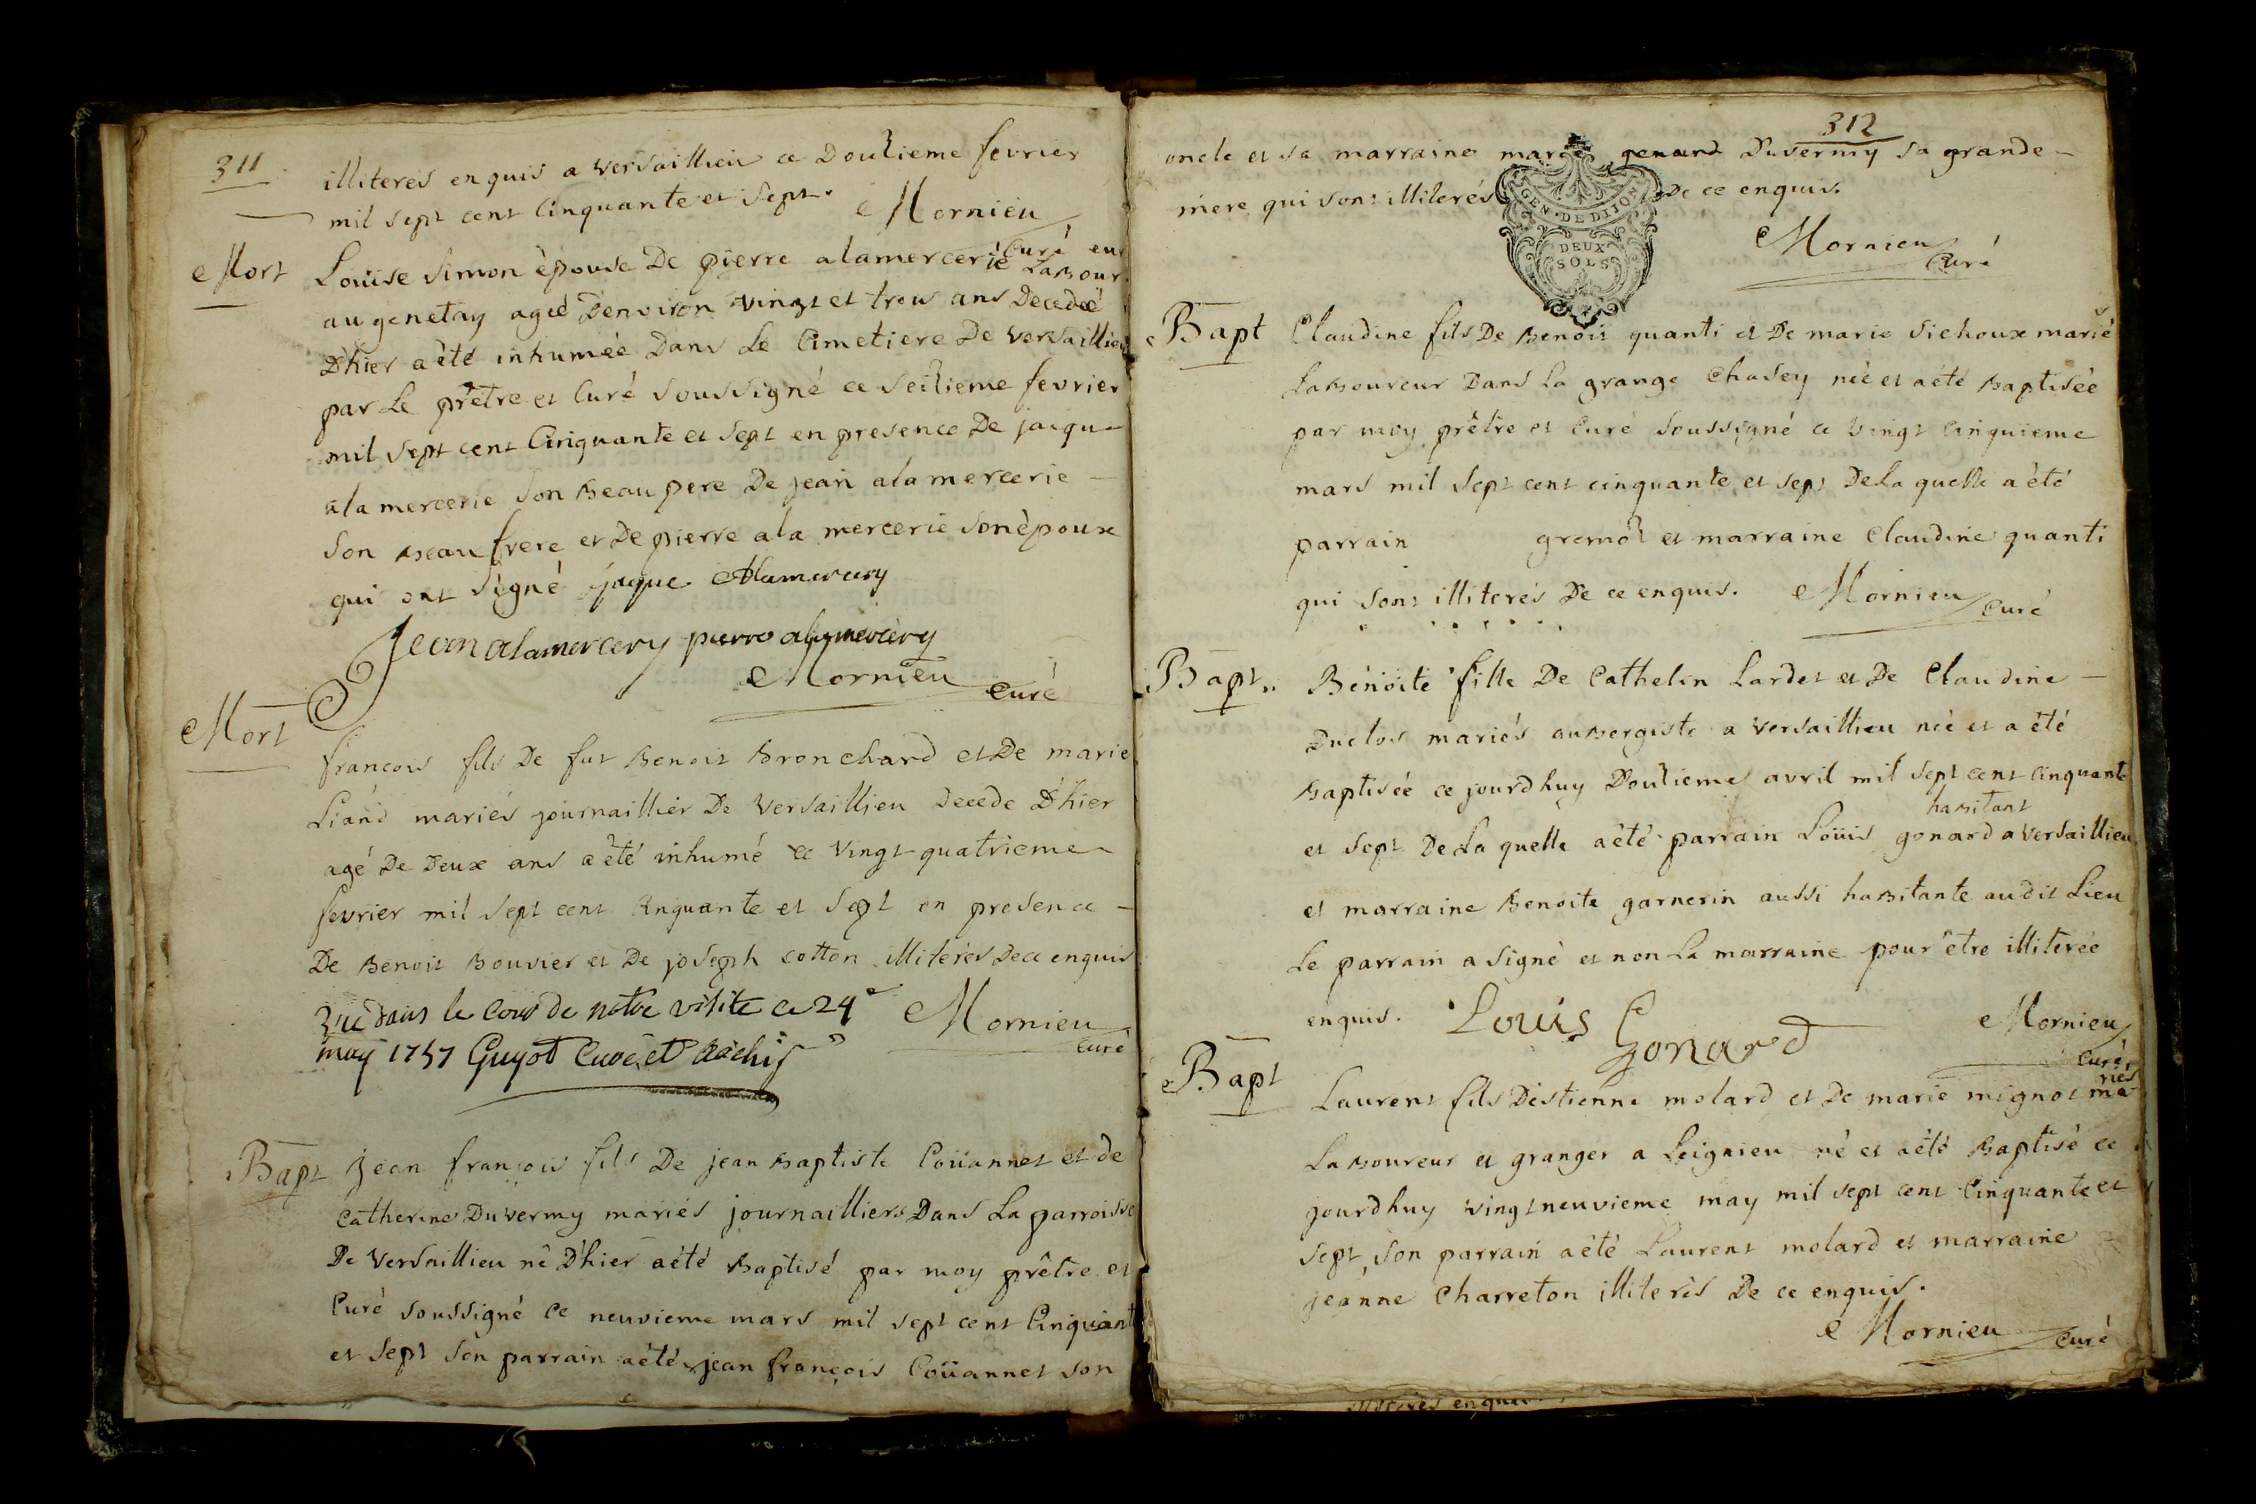 311
illiterés enquis a Versaillieu ce Douzieme fevrier
mil sept cent Cinquante et sept. Mornieu
Curé
Mort
Loüise Simon épouse De pierre alamercerie Labour
eur
au genetay ageé D'environ vingt et trois ans Decedeé
D'hier a été inhumée Dans Le Cimetiere De Versaillieu
par Le prêtre et Curé soussigné ce seizieme fevrier
mil sept cent Cinquante et sept en presence De jaque
ala mercerie son Beau pere De jean ala mercerie
son Beau frere et De pierre ala mercerie son époux
qui ont signé jaque Alamercery
Jean alamercery pierre alamercery
Mornieu
Curé
Mort
françois fils De fut Benoit Bronchard et De marie
Liand mariés journaillier De Versaillieu Decede D'hier
agé De Deux ans a été inhumé ce vingt quatrieme
fevrier mil sept cent Cinquante et sept en presence
De Benoit Bouvier et De joseph cotton illiterés De ce enquis
Vu dans le cours de notre visite ce 24e
may 1757 Guyot Curé et
Mornieu
Curé
Bapt
Jean françois fils De jean Baptiste Coüannet et de
Catherine Duvermy mariés journailliers Dans La parroisse
De Versaillieu né D'hier a été Baptisé par moy prêtre et
Curé soussigné ce neuvieme mars mil sept cent Cinquante
et sept son parrain a été jean françois Coüannet son
312
oncle et sa marraine Duvermy sa grande
mere qui sont illiterés De ce enquis.
GEN · DE DIJON
DEUX
SOLS
Mornieu
Curé
Bapt
Claudine fils De Benoit quanti et De marie Sichoux mariés
Laboureur Dans La grange Chasey neé et a été Baptisée
par moy prêtre et Curé soussigné ce vingt cinquieme
mars mil sept cent cinquante et sept De La quelle a été
parrain gremoz et marraine Claudine quanti
qui sont illiterés De ce enquis. Mornieu
Curé
Bapt
Benoite fille De Cathelin Lardet et De Claudine
Duclos mariés aubergiste a Versaillieu neé et a été
Baptisée ce jourdhuy Douzieme avril mil sept cent cinquante
habitant
et sept De La quelle a été parrain Loüis gonard a Versaillieu
et marraine Benoite garnerin aussi habitante audit Lieu
Le parrain a signé et non La marraine pour être illiterée
enquis. Louis Gonard Mornieu
Curé
Bapt
riés
Laurent fils D'estienne molard et De marie mignot ma
Laboureur et granger a Leignieu né et a été Baptisé ce
jourdhuy vingt neuvieme may mil sept cent Cinquante et
sept, son parrain a été Laurent molard et marraine
jeanne Charreton illiterés De ce enquis.
Mornieu
Curé